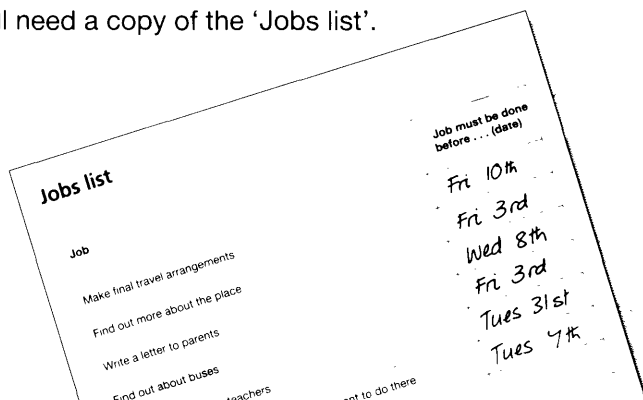 ll need a copy of the ‘Jobs list’.
Jobs list
Job must be done
before . . . (date)
Job
Make final travel arrangements Fri 10th
Find out more about the place Fri 3rd
Write a letter to parents Wed 8th
Find out about buses Fri 3rd
teachers Tues 31st
nt to do there Tues 7th